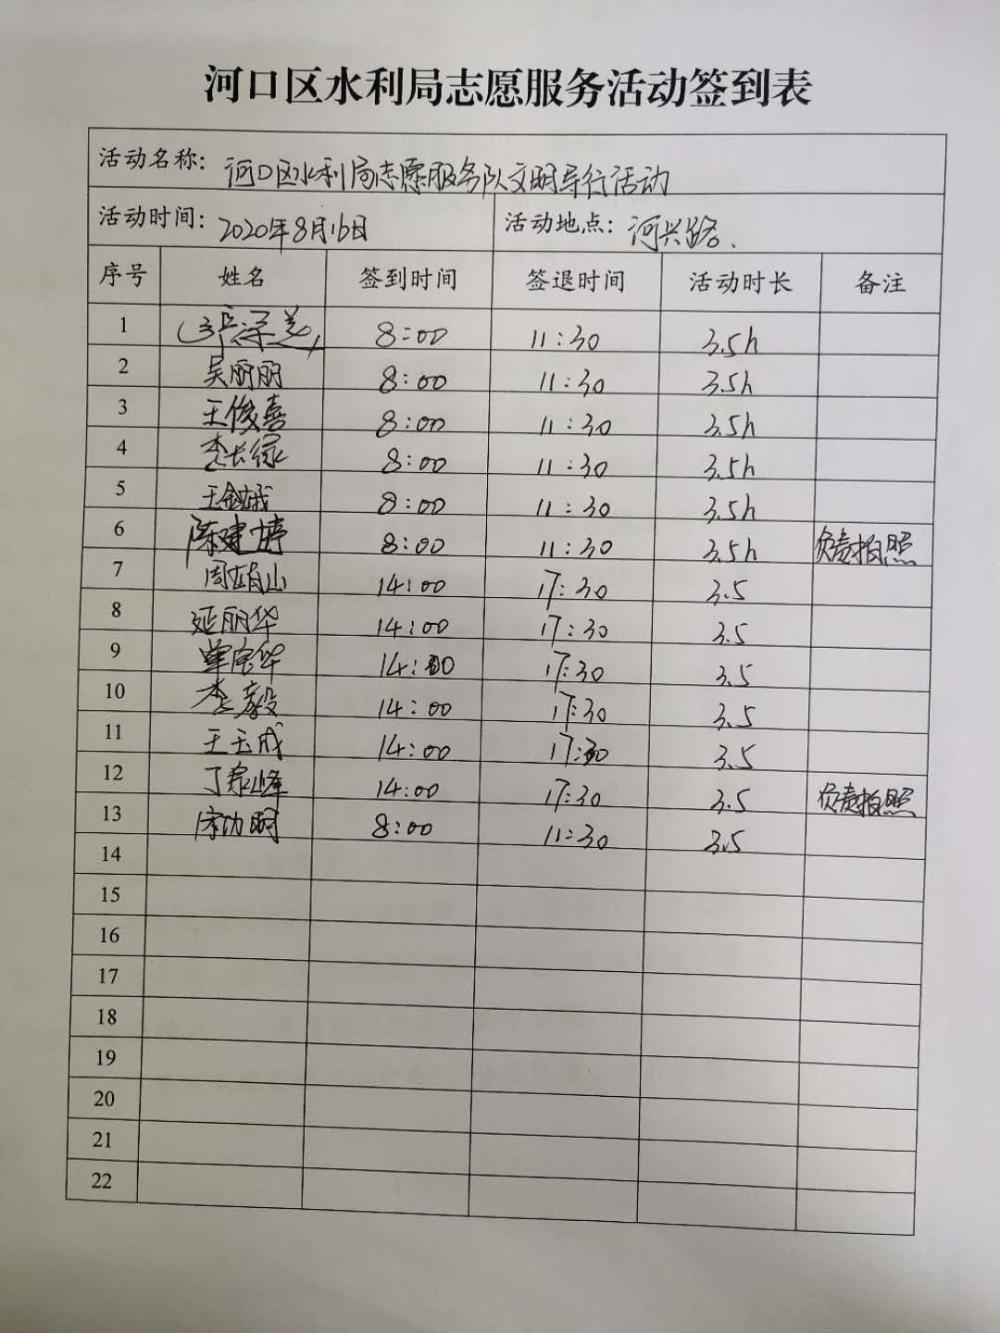 河口区水利局志愿服务活动签到表
活动名称: 河口区水利局志愿服务队文明导行活动
活动时间: 2020年8月16日 活动地点: 河兴路.
序号 姓名 签到时间 签退时间 活动时长 备注
1 8:00 11:30 3.5h
2 吴丽丽 8:00 11:30 3.5h
3 王俊喜 8:00 11:30 3.5h
4 李长绿 8:00 11:30 3.5h
5 8:00 11:30 3.5h
6 陈建婷 8:00 11:30 3.5h 负责拍照
7 14:00 17:30 3.5
8 延丽华 14:00 17:30 3.5
9 14:00 17:30 3.5
10 李毅 14:00 17:30 3.5
11 王玉成 14:00 17:30 3.5
12 14:00 17:30 3.5 负责拍照
13 8:00 11:30 3.5
14
15
16
17
18
19
20
21
22